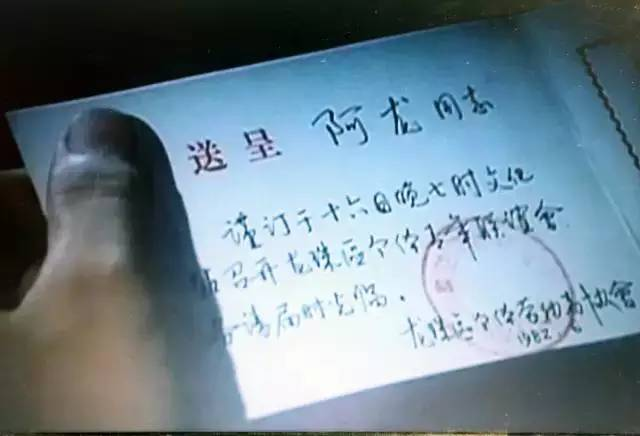 送呈 阿龙同志
谨订于十六日晚七时文化
站召开龙珠区个体青年联谊会
务请届时光临。
龙珠区个体劳动者协会
1982.